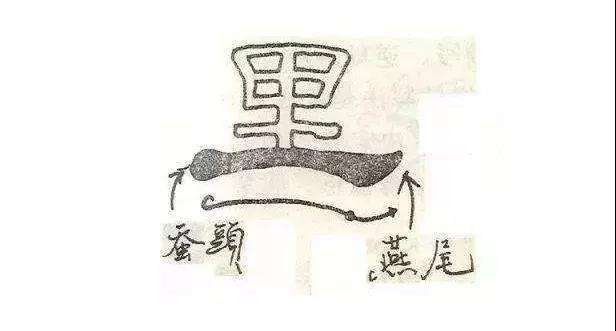 里
蚕頭
燕尾